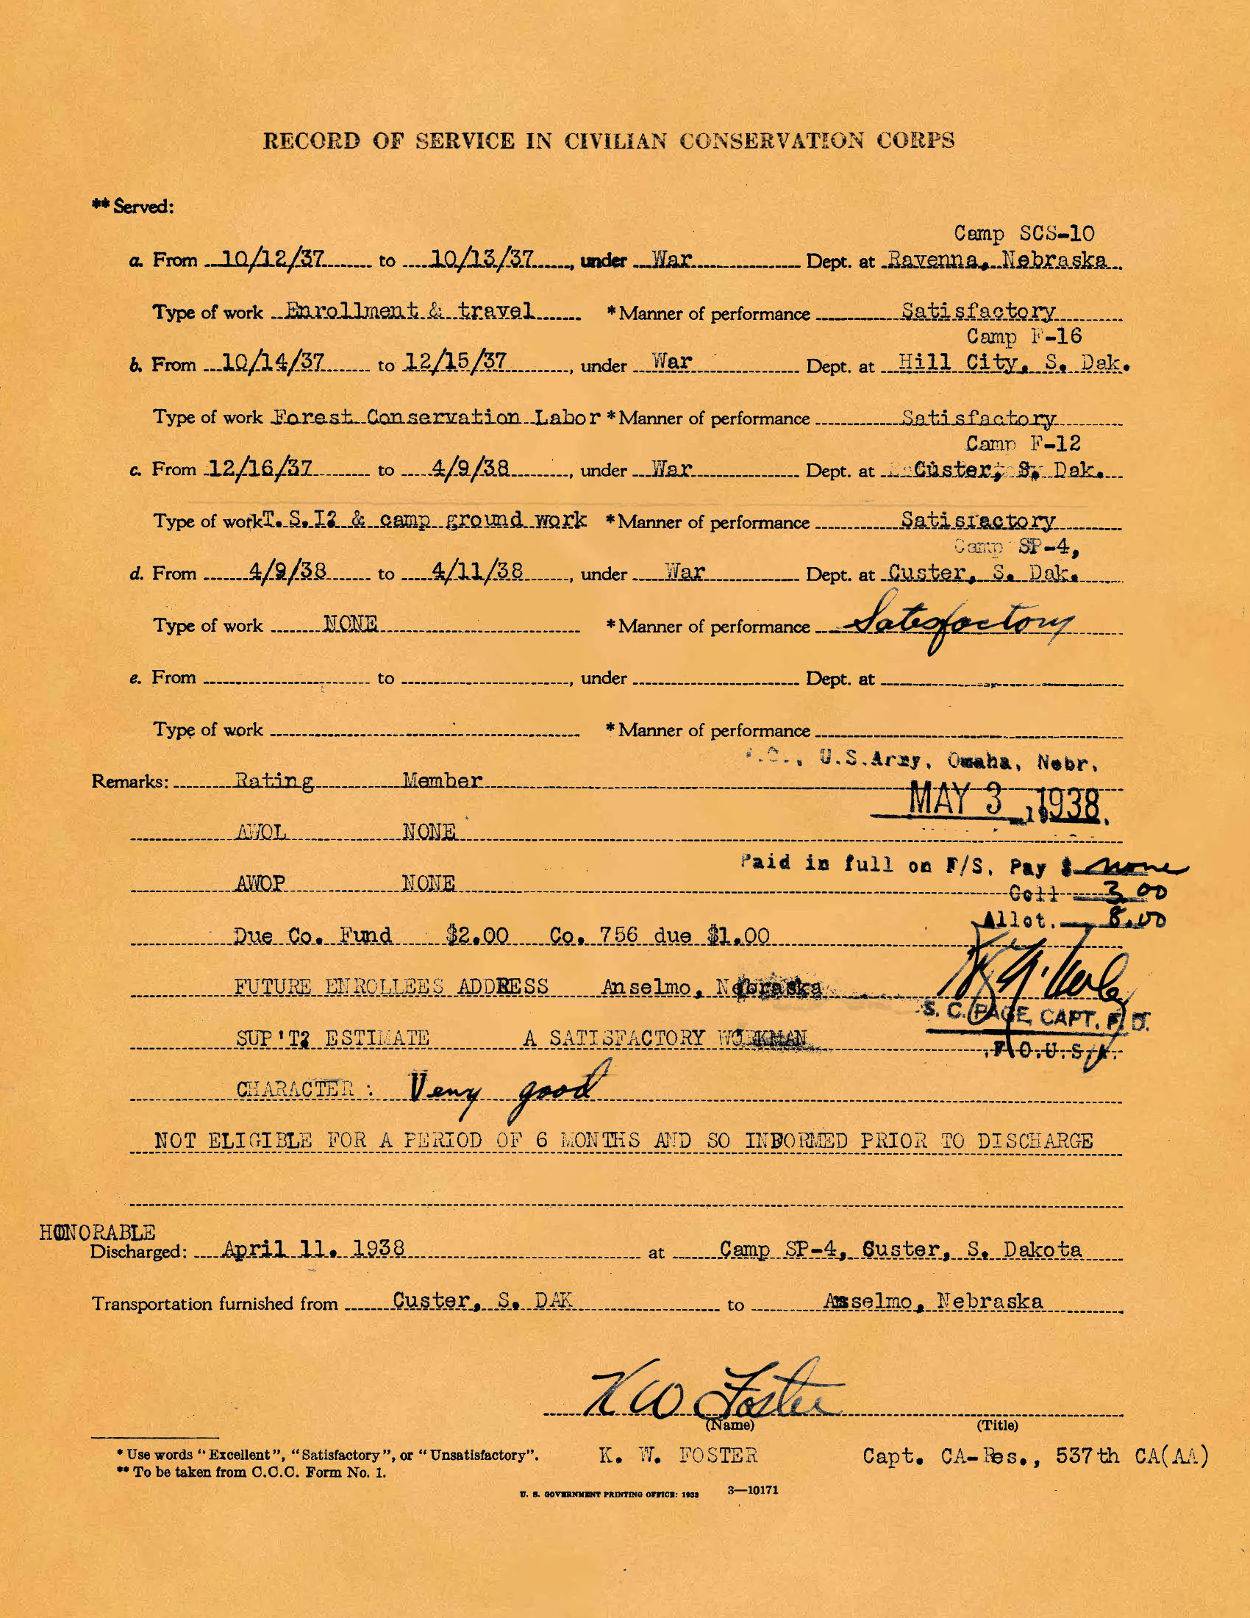 RECORD OF SERVICE IN CIVILIAN CONSERVATION CORPS
** Served:
Camp SCS-10
a. From 10/12/37 to 10/13/37, under War Dept. at Ravenna, Nebraska
Type of work Enrollment & travel * Manner of performance Satisfactory
Camp F-16
b. From 10/14/37 to 12/15/37, under War Dept. at Hill City, S. Dak.
Type of work Forest Conservation Labor * Manner of performance Satisfactory
Camp F-12
c. From 12/16/37 to 4/9/38, under War Dept. at Custer, S. Dak.
Type of work T.S.I? & camp ground work * Manner of performance Satisfactory
Camp SP-4,
d. From 4/9/38 to 4/11/38, under War Dept. at Custer, S. Dak.
Type of work NONE * Manner of performance Satisfactory
e. From to , under Dept. at
Type of work * Manner of performance
U.S.Army, Omaha, Nebr.
Remarks: Rating Member
MAY 3, 1938.
AWOL NONE
Paid in full on F/S. Pay $ none
AWOP NONE
Coll 3.00
Allot. 8.00
Due Co. Fund $2.00 Co. 756 due $1.00
FUTURE ENROLLEES ADDRESS Anselmo, Nebraska
S. C. PAGE, CAPT. F. D.
SUP'T? ESTIMATE A SATISFACTORY WORKMAN
F.O.U.S.A.
CHARACTER : Very good
NOT ELIGIBLE FOR A PERIOD OF 6 MONTHS AND SO INFORMED PRIOR TO DISCHARGE
HONORABLE
Discharged: April 11, 1938 at Camp SP-4, Custer, S. Dakota
Transportation furnished from Custer, S. DAK to Anselmo, Nebraska
K W Foster
(Name) (Title)
* Use words "Excellent", "Satisfactory", or "Unsatisfactory".
K. W. FOSTER Capt. CA-Res., 537th CA(AA)
** To be taken from C.C.C. Form No. 1.
U. S. GOVERNMENT PRINTING OFFICE: 1933 3—10171